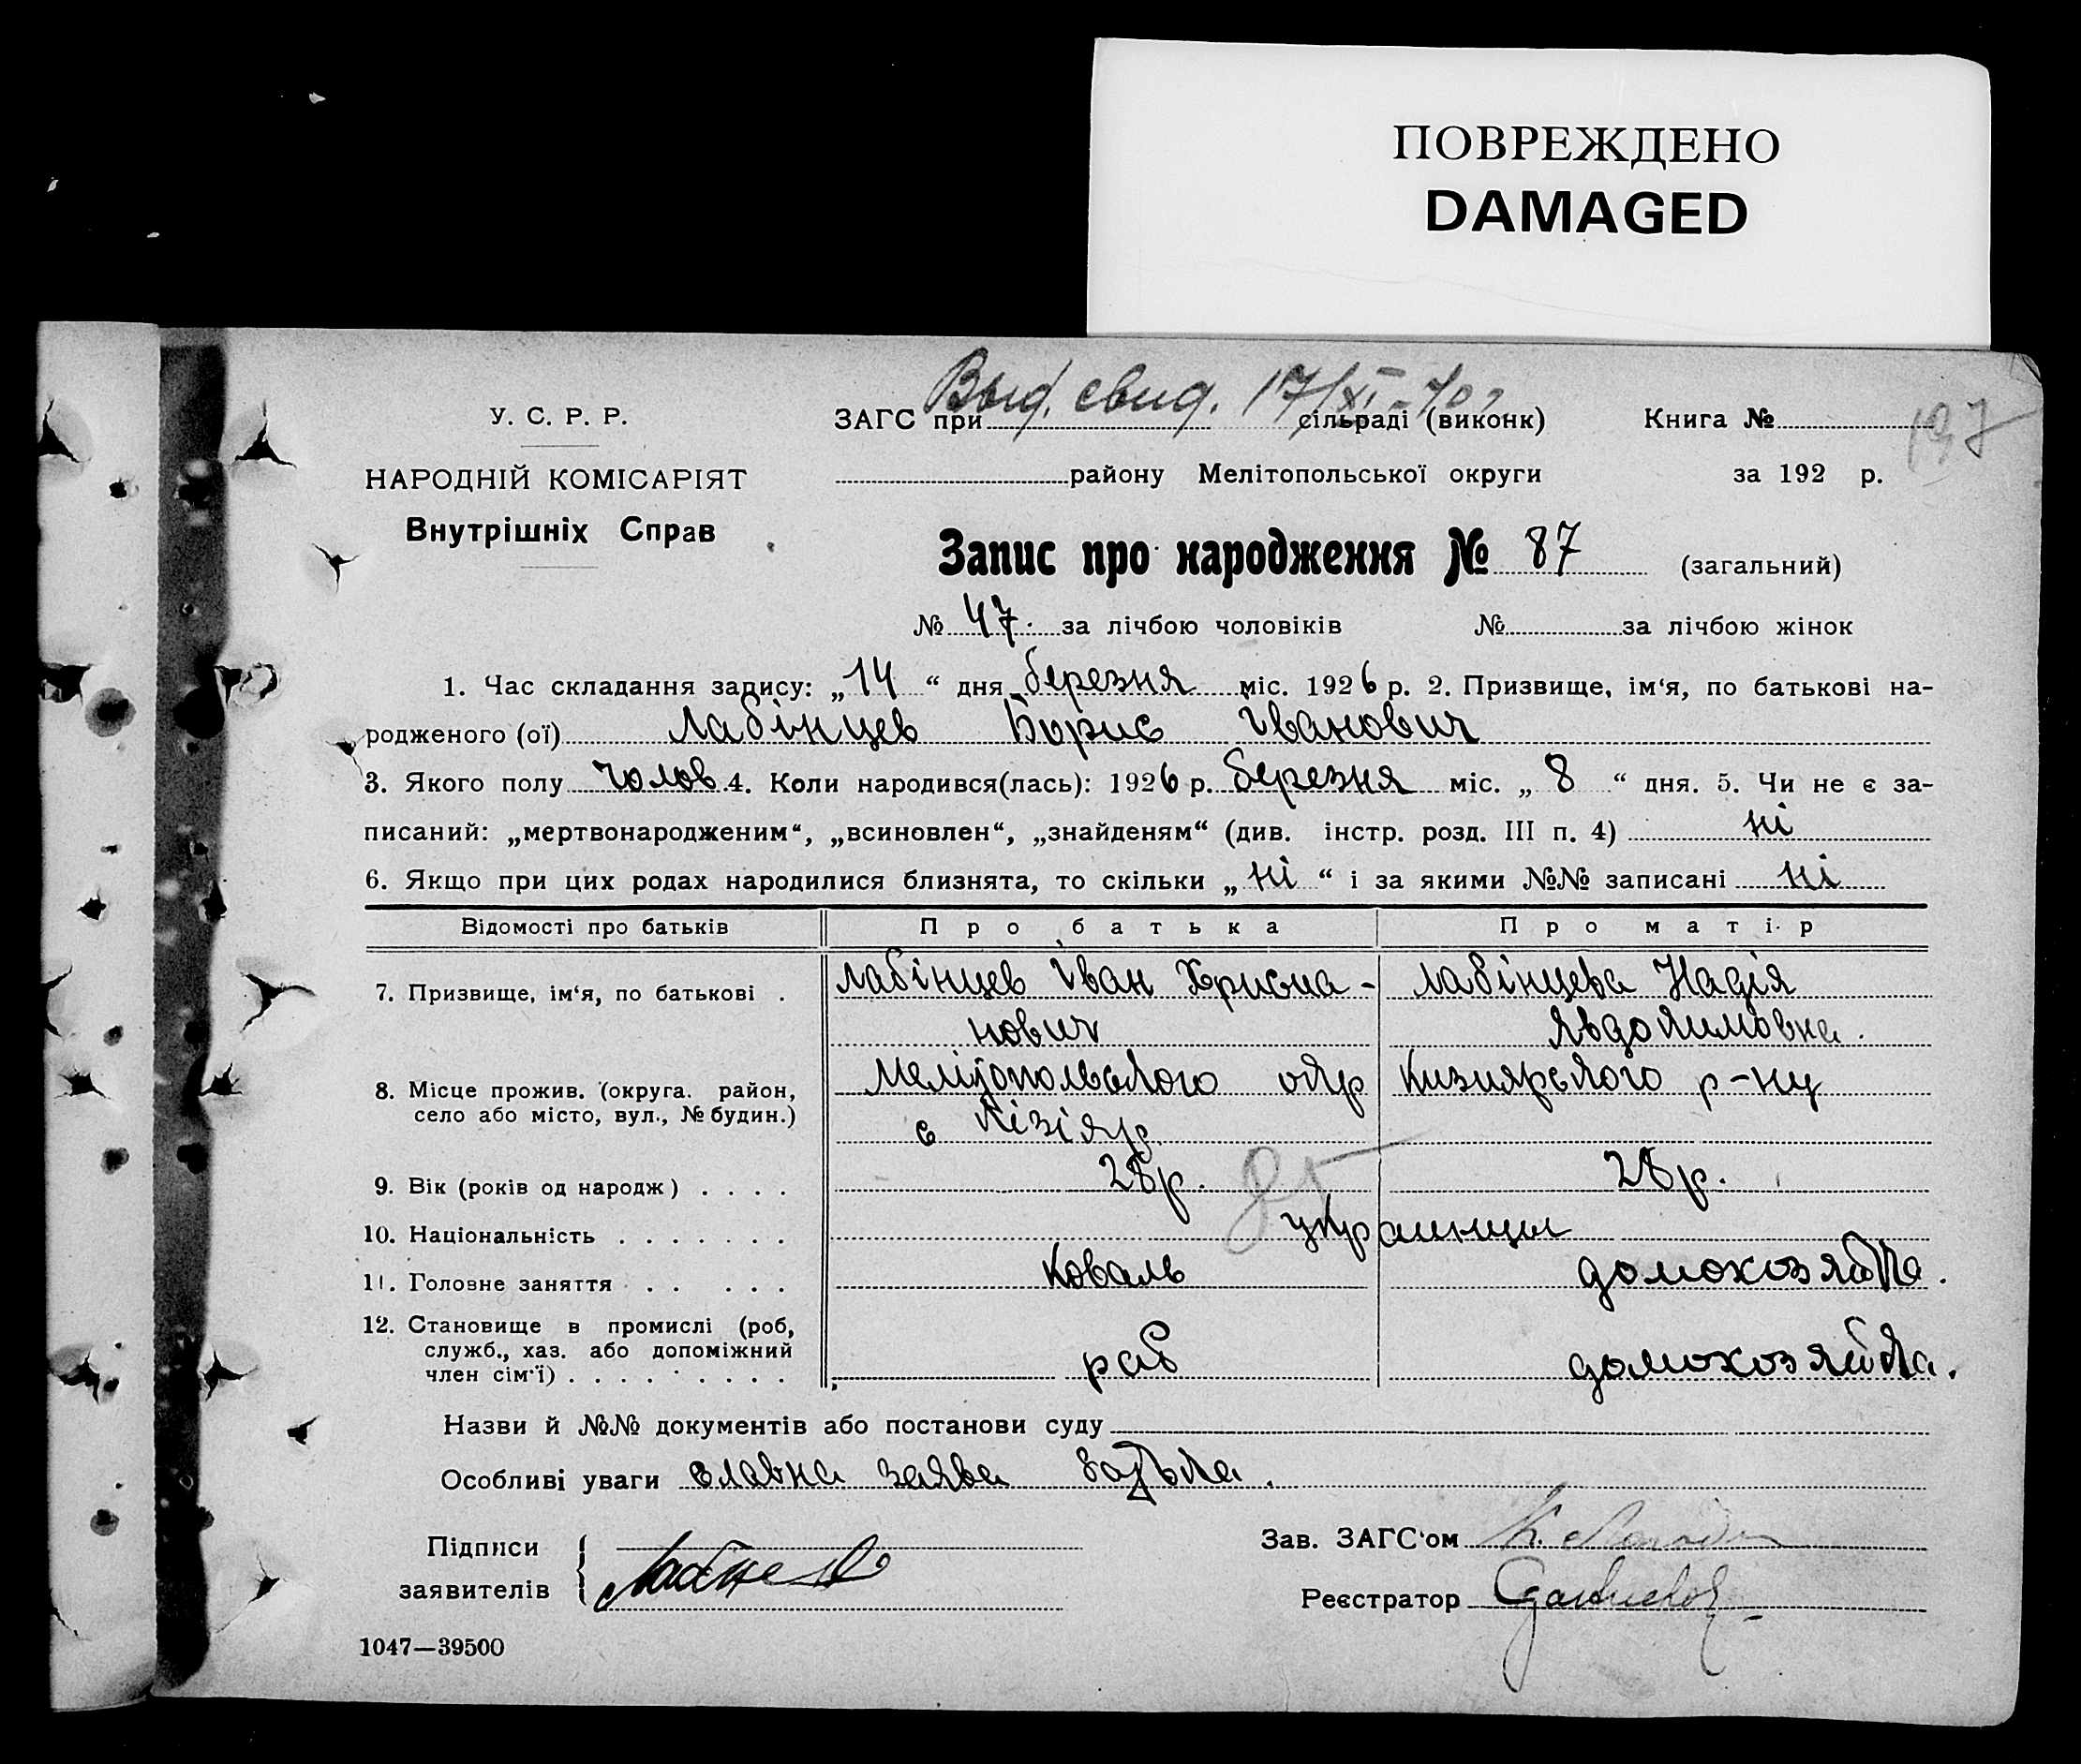 ПОВРЕЖДЕНО
DAMAGED
Выд. свид. 17/XI-
У. С. Р. Р.
ЗАГС при сільраді (виконк)
Книга №
197
НАРОДНІЙ КОМІСАРІЯТ
району Мелітопольської округи
за 192 р.
Внутрішніх Справ
Запис про народження № 87 (загальний)
№ 47. за лічбою чоловіків № за лічбою жінок
1. Час складання запису: „14“ дня березня міс. 1926 р. 2. Призвище, ім‘я, по батькові на-
родженого (ої) Лабінцев Борис Іванович
3. Якого полу чолов 4. Коли народився(лась): 1926 р. березня міс. „8“ дня. 5. Чи не є за-
писаний: „мертвонародженим“, „всиновлен“, „знайденям“ (див. інстр. розд. III п. 4) ні
6. Якщо при цих родах народилися близнята, то скільки „ні“ і за якими №№ записані ні
Відомості про батьків Про батька Про матір
7. Призвище, ім‘я, по батькові . Лабінцев Іван Хрисна- Лабінцева Надія
нович Явдокимовна.
8. Місце прожив. (округа. район, Мелітопольского окр Кизиярского р-ну
село або місто, вул., № будин.) с Кізіяр.
9. Вік (років од народж) . . . . 28р. 28р.
85
10. Національність . . . . . . . украинци
11. Головне заняття . . . . . Коваль домохозяйка.
12. Становище в промислі (роб,
служб., хаз. або допоміжний раб домохозяйка.
член сім‘ї) . . . . . . . . .
Назви й №№ документів або постанови суду
Особливі уваги славна заява батька.
Підписи
заявителів
Зав. ЗАГС‘ом
Реєстратор
1047—39500